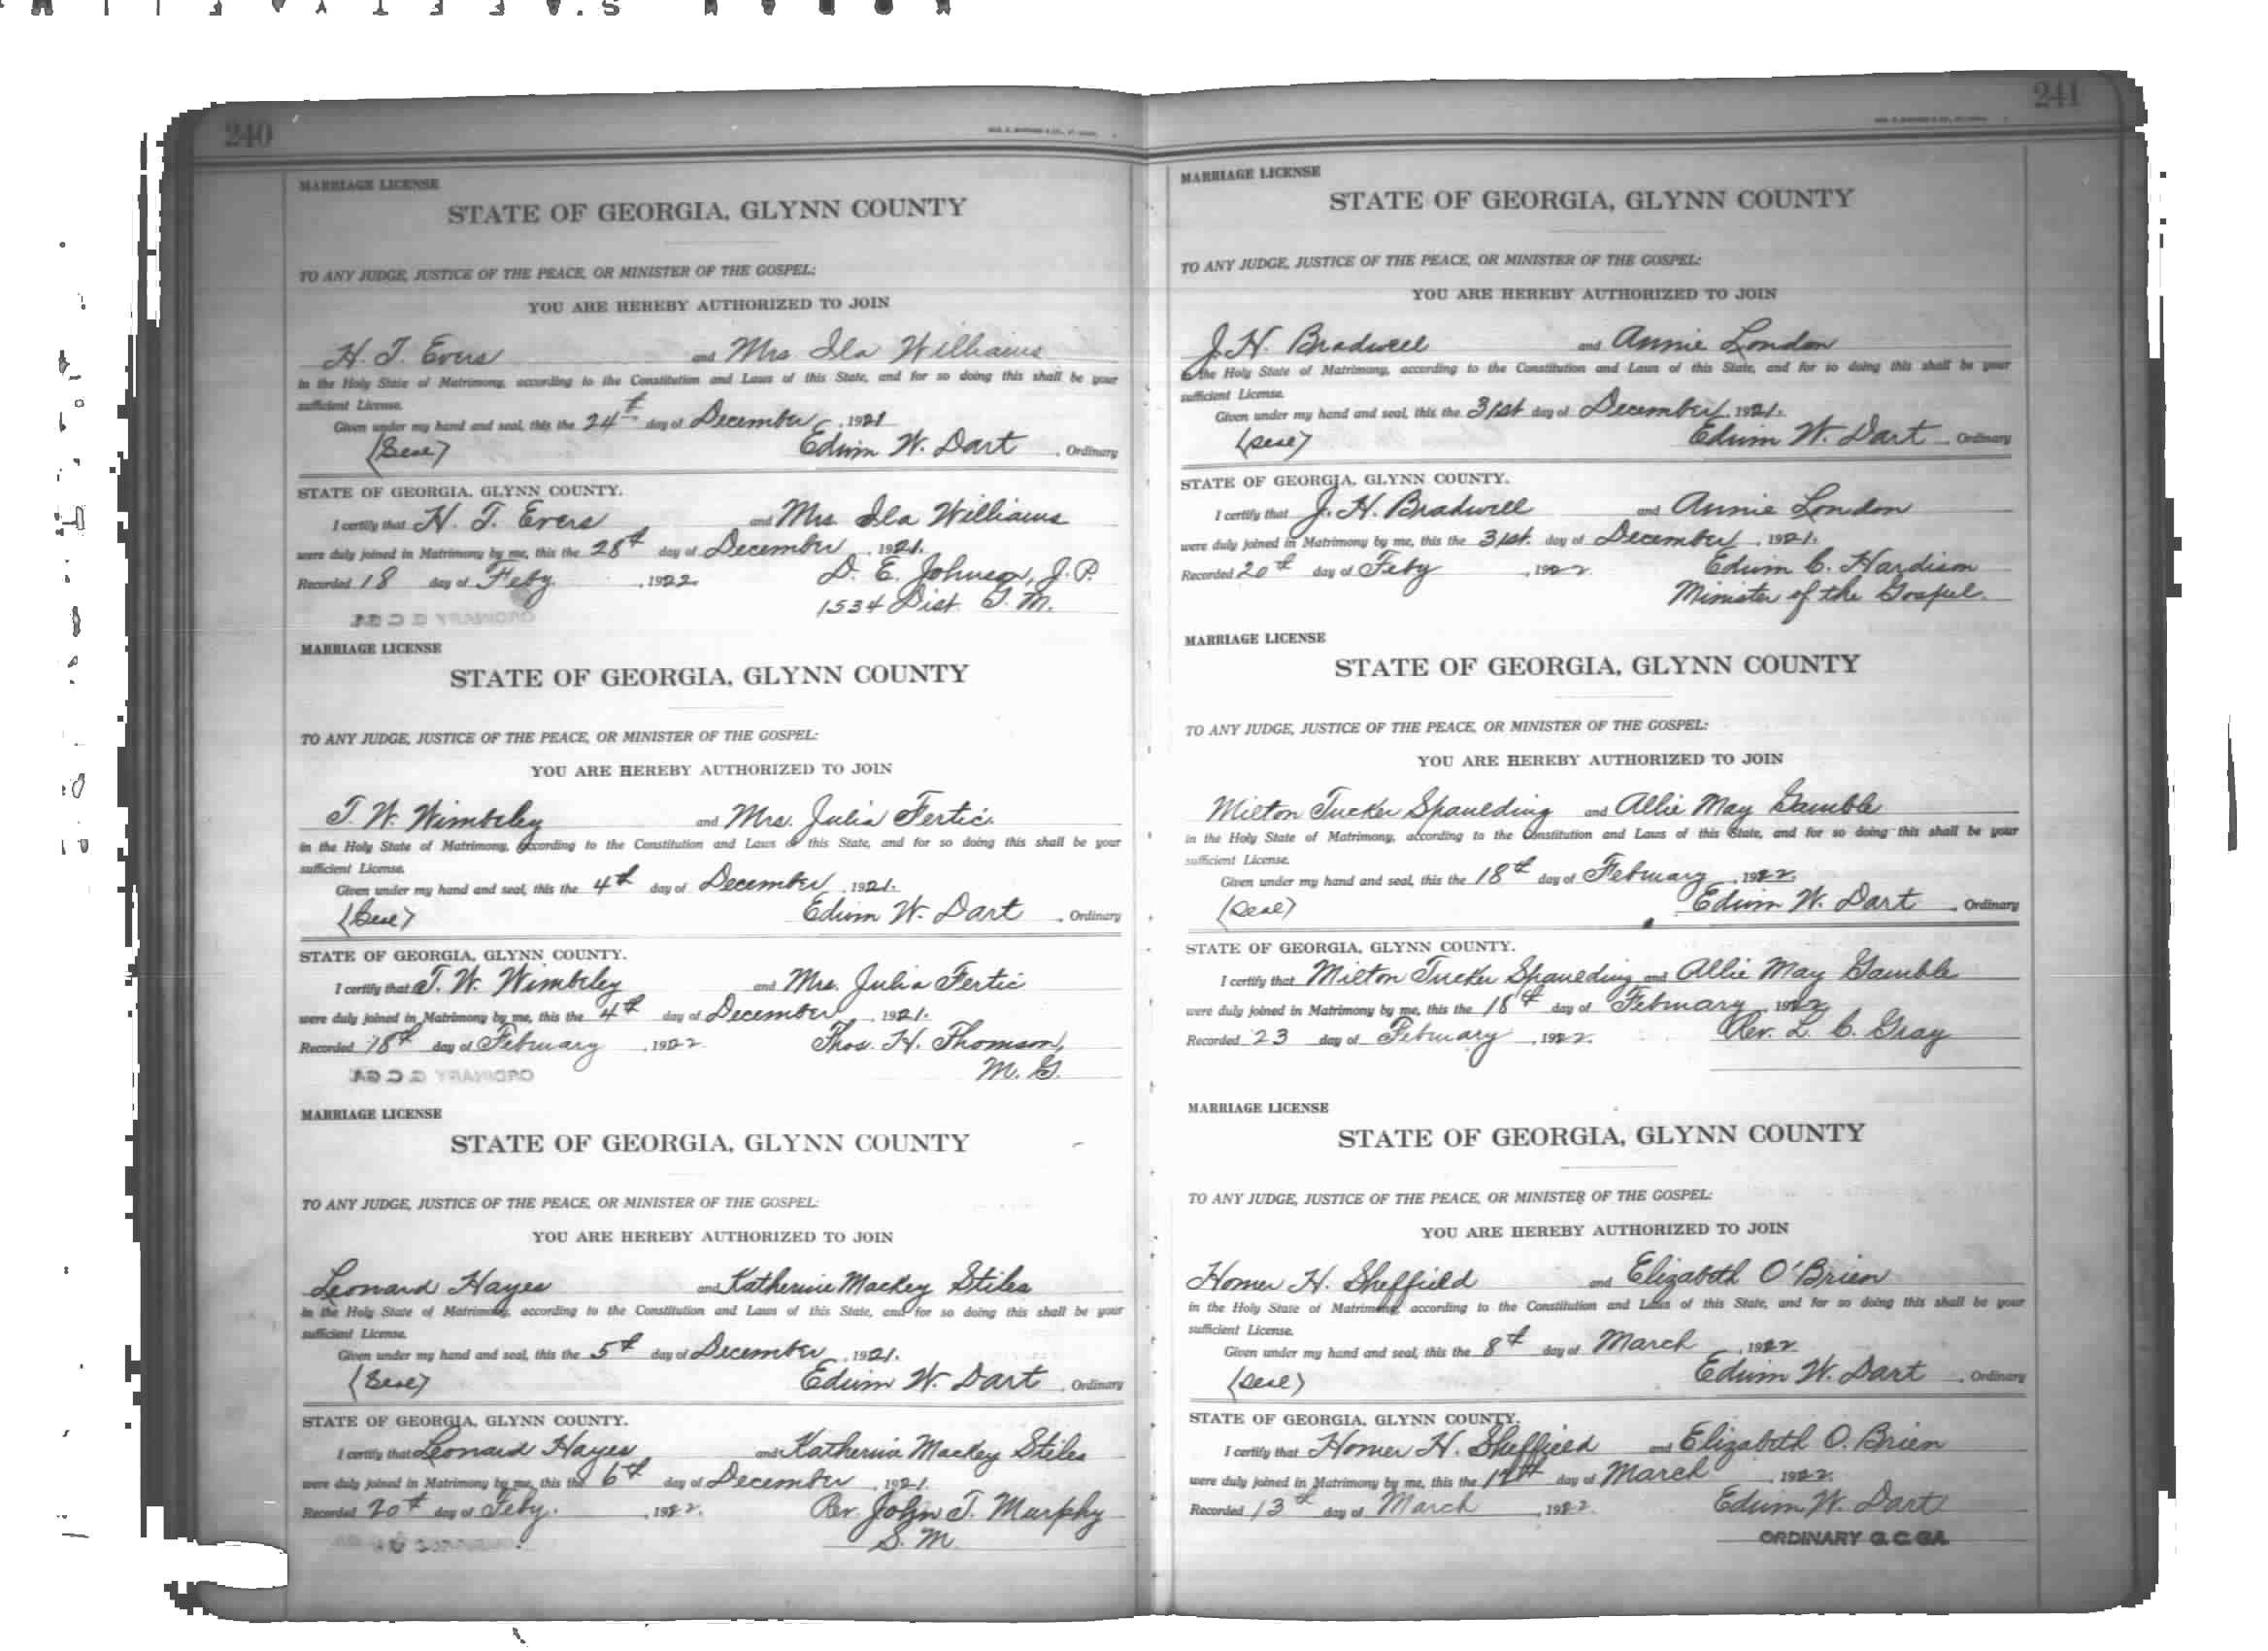 240
MARRIAGE LICENSE
STATE OF GEORGIA, GLYNN COUNTY
TO ANY JUDGE, JUSTICE OF THE PEACE, OR MINISTER OF THE GOSPEL:
YOU ARE HEREBY AUTHORIZED TO JOIN
H. T. Evers and Mrs Ila Williams
in the Holy State of Matrimony, according to the Constitution and Laws of this State, and for so doing this shall be your
sufficient License.
Given under my hand and seal, this the 24th day of December, 1921
(Seal) Edwin W. Dart, Ordinary
STATE OF GEORGIA, GLYNN COUNTY.
I certify that H. T. Evers and Mrs Ila Williams
were duly joined in Matrimony by me, this the 28th day of December, 1921.
Recorded 18 day of Feby, 1922. D. E. Johnson, J.P.
1534 Dist. G. M.
MARRIAGE LICENSE
STATE OF GEORGIA, GLYNN COUNTY
TO ANY JUDGE, JUSTICE OF THE PEACE, OR MINISTER OF THE GOSPEL:
YOU ARE HEREBY AUTHORIZED TO JOIN
T. W. Wimbley and Mrs. Julia Fertic.
in the Holy State of Matrimony, according to the Constitution and Laws of this State, and for so doing this shall be your
sufficient License.
Given under my hand and seal, this the 4th day of December, 1921.
(Seal) Edwin W. Dart, Ordinary
STATE OF GEORGIA, GLYNN COUNTY.
I certify that T. W. Wimbley and Mrs. Julia Fertic
were duly joined in Matrimony by me, this the 4th day of December, 1921.
Recorded 18th day of February, 1922. Thos. H. Thomson,
M. G.
MARRIAGE LICENSE
STATE OF GEORGIA, GLYNN COUNTY
TO ANY JUDGE, JUSTICE OF THE PEACE, OR MINISTER OF THE GOSPEL:
YOU ARE HEREBY AUTHORIZED TO JOIN
Leonard Hayes and Katherine Mackey Stiles
in the Holy State of Matrimony, according to the Constitution and Laws of this State, and for so doing this shall be your
sufficient License.
Given under my hand and seal, this the 5th day of December, 1921.
(Seal) Edwin W. Dart, Ordinary
STATE OF GEORGIA, GLYNN COUNTY.
I certify that Leonard Hayes and Katherine Mackey Stiles
were duly joined in Matrimony by me, this the 6th day of December, 1921.
Recorded 20th day of Feby., 1922. Rev. John T. Murphy
S. M.
241
MARRIAGE LICENSE
STATE OF GEORGIA, GLYNN COUNTY
TO ANY JUDGE, JUSTICE OF THE PEACE, OR MINISTER OF THE GOSPEL:
YOU ARE HEREBY AUTHORIZED TO JOIN
J. H. Bradwell and Annie London
in the Holy State of Matrimony, according to the Constitution and Laws of this State, and for so doing this shall be your
sufficient License.
Given under my hand and seal, this the 31st day of December, 1921.
(Seal) Edwin W. Dart, Ordinary
STATE OF GEORGIA, GLYNN COUNTY.
I certify that J. H. Bradwell and Annie London
were duly joined in Matrimony by me, this the 31st. day of December, 1921.
Recorded 20th day of Feby, 1922. Edwin C. Hardison
Minister of the Gospel.
MARRIAGE LICENSE
STATE OF GEORGIA, GLYNN COUNTY
TO ANY JUDGE, JUSTICE OF THE PEACE, OR MINISTER OF THE GOSPEL:
YOU ARE HEREBY AUTHORIZED TO JOIN
Milton Tucker Spaulding and Allie May Gamble
in the Holy State of Matrimony, according to the Constitution and Laws of this State, and for so doing this shall be your
sufficient License.
Given under my hand and seal, this the 18th day of February, 1922.
(Seal) Edwin W. Dart, Ordinary
STATE OF GEORGIA, GLYNN COUNTY.
I certify that Milton Tucker Spaulding and Allie May Gamble
were duly joined in Matrimony by me, this the 18th day of February, 1922
Recorded 23 day of February, 1922. Rev. L. C. Gray
MARRIAGE LICENSE
STATE OF GEORGIA, GLYNN COUNTY
TO ANY JUDGE, JUSTICE OF THE PEACE, OR MINISTER OF THE GOSPEL:
YOU ARE HEREBY AUTHORIZED TO JOIN
Homer H. Sheffield and Elizabeth O'Brien
in the Holy State of Matrimony, according to the Constitution and Laws of this State, and for so doing this shall be your
sufficient License.
Given under my hand and seal, this the 8th day of March, 1922
(Seal) Edwin W. Dart, Ordinary
STATE OF GEORGIA, GLYNN COUNTY.
I certify that Homer H. Sheffield and Elizabeth O. Brien
were duly joined in Matrimony by me, this the 12th day of March, 1922.
Recorded 13th day of March, 1922. Edwin W. Dart
ORDINARY G. C. GA.